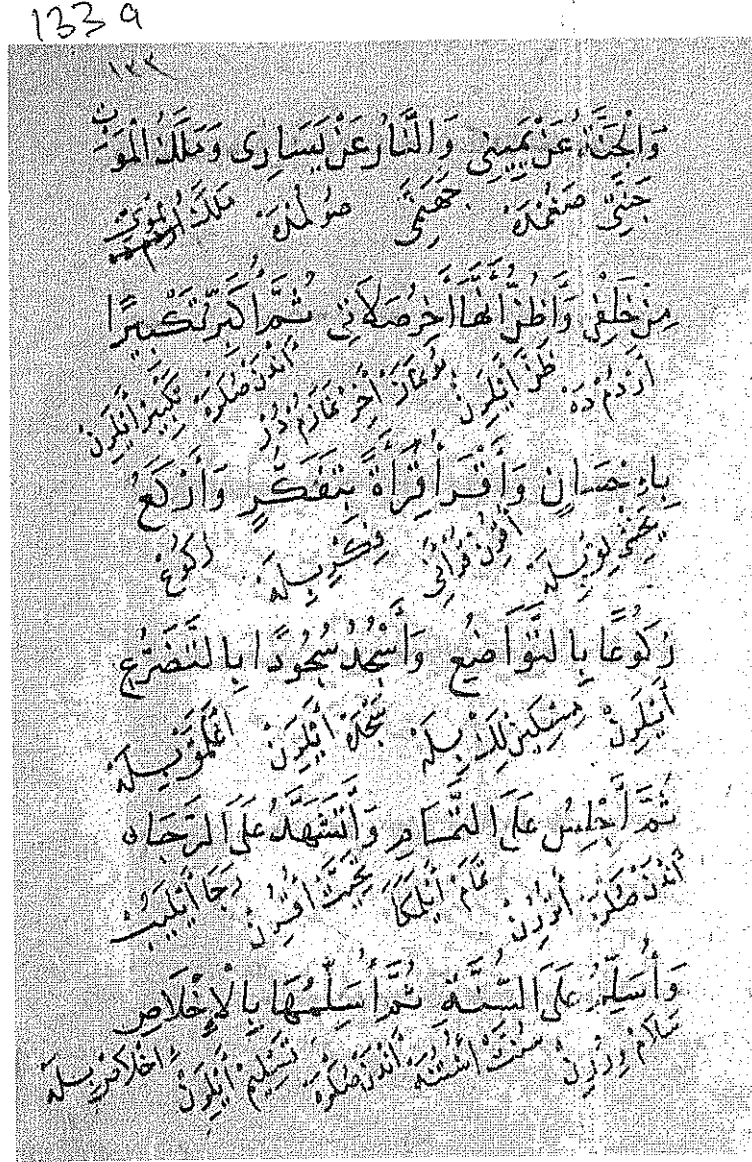 133 a
١٣٣
وَالْجَنَّةُ عَنْ يَمِينِي وَالنَّارُ عَنْ يَسَارِى وَمَلَكُ الْمَوْتِ
جَنَّتِى صَغُمْدَه جَهَنَّمِى صُولُمْدَه مَلَكُ الْمَوْتِى
مِنْ خَلْفِى وَاَظُنُّ اَنَّهَا آخِرُ صَلَاتِى ثُمَّ اُكَبِّرُ تَكْبِيرًا
اَرْدُمْدَه ظَنْ اَيْلَرِنْ بُو نَمَازْ آخِرْ نَمَازُمْدُرْ اَنْدَنْ صُكْرَه تَكْبِيرْ اَيْلَرِنْ
بِاِحْسَانٍ وَاَقْرَأُ قِرَأَةً بِتَفَكُّرٍ وَاَرْكَعُ
اُقُرِنْ قُرْاَنِى فِكْرِيلَه رُكُوعْ
رُكُوعًا بِالتَّوَاضُعِ وَاَسْجُدُ سُجُودًا بِالتَّضَرُّعِ
اَيْلَرِنْ مِسْكِينْلِكْ بِيلَه سَجْدَه اَيْلَرِنْ اَغْلَمَقْ بِيلَه
ثُمَّ اَجْلِسُ عَلَى التَّمَامِ وَاَتَشَهَّدُ عَلَى الرَّجَاءِ
اَنْدَنْ صُكْرَه اُتُرُرِنْ تَمَامْ تَحِيَّتْ اُقُرِنْ رَجَا اَيْلَيُبْ
وَاُسَلِّمُ عَلَى السُّنَّةِ ثُمَّ اُسَلِّمُهَا بِالْاِخْلَاصِ
سَلَامْ وِرُرِنْ سُنَّتْ اُسْتُنَه اَنْدَنْ صُكْرَه تَسْلِيمْ اَيْلَرِنْ اِخْلَاصْ بِيلَه